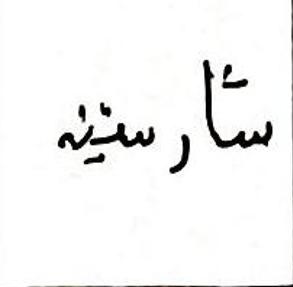 شارستینە